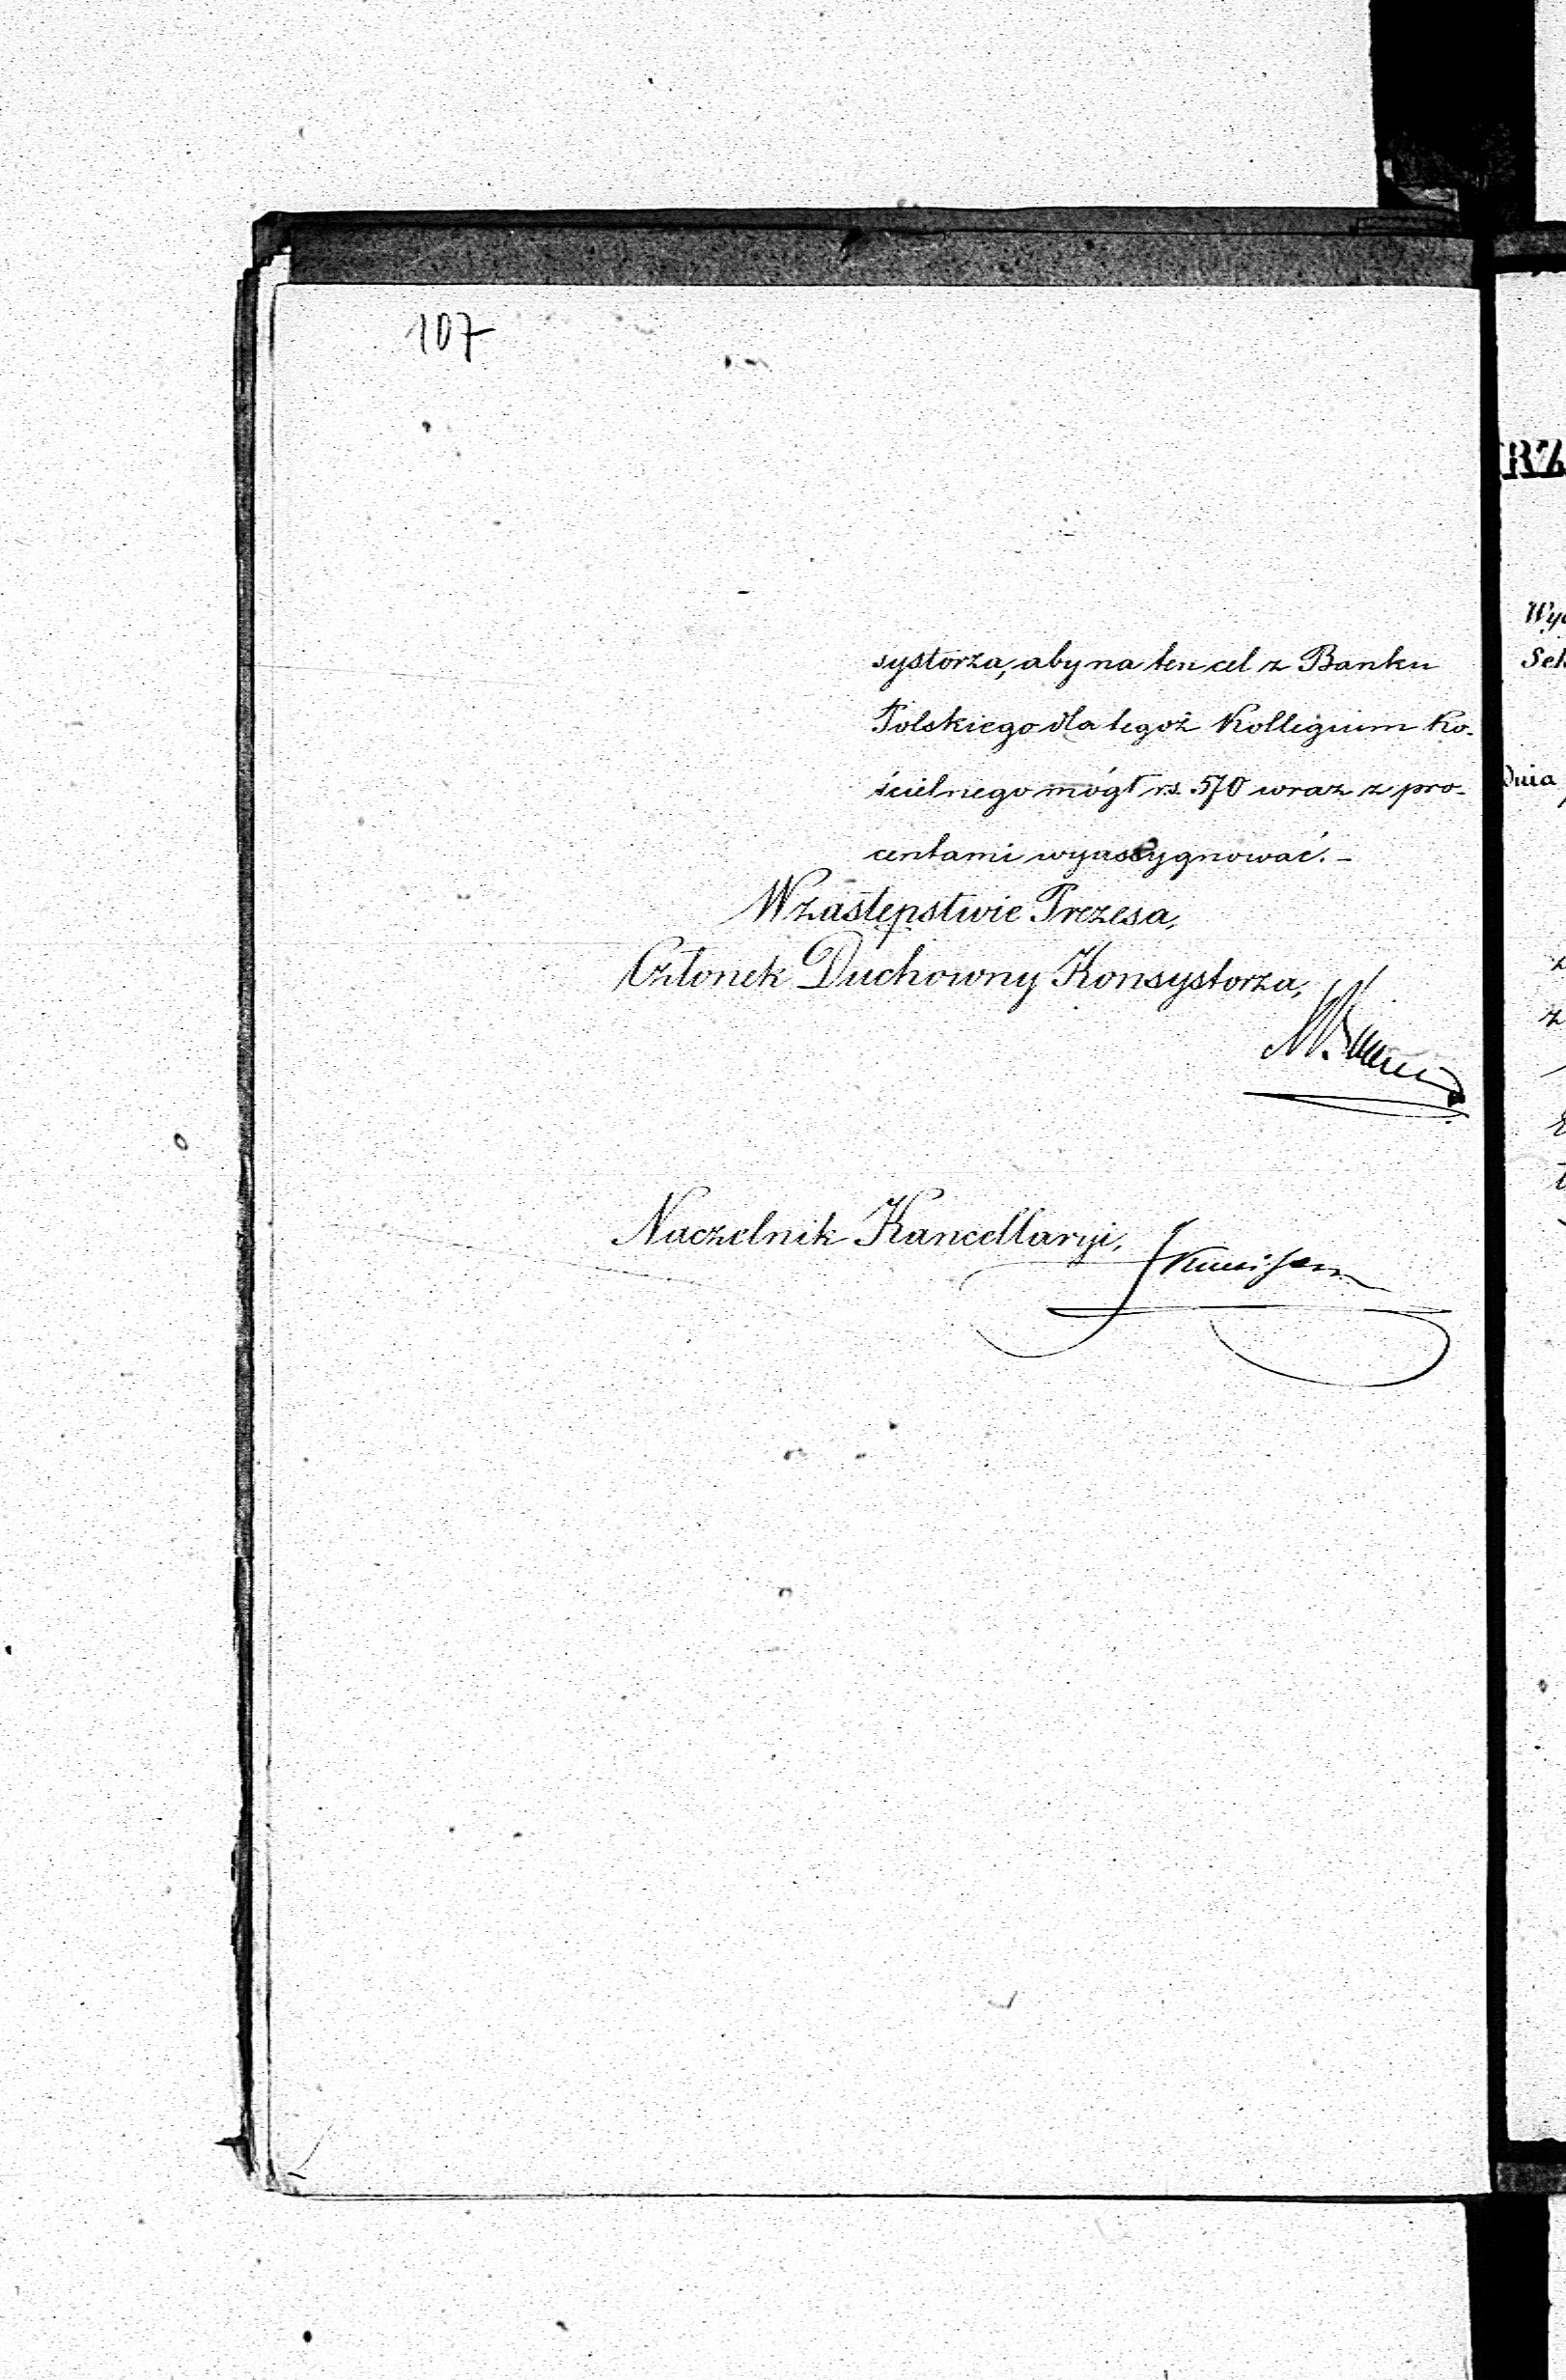 107
systorza, aby na ten cel z Banku
Polskiego dla tegoż Kollegium Ko-
ścielnego mógł rs. 570 wraz z pro-
centami wyassygnować. -
W zastępstwie Prezesa,
Członek Duchowny Konsystorza,
Naczelnik Kancellaryi,
RZ
Wyd
Sek
Dnia